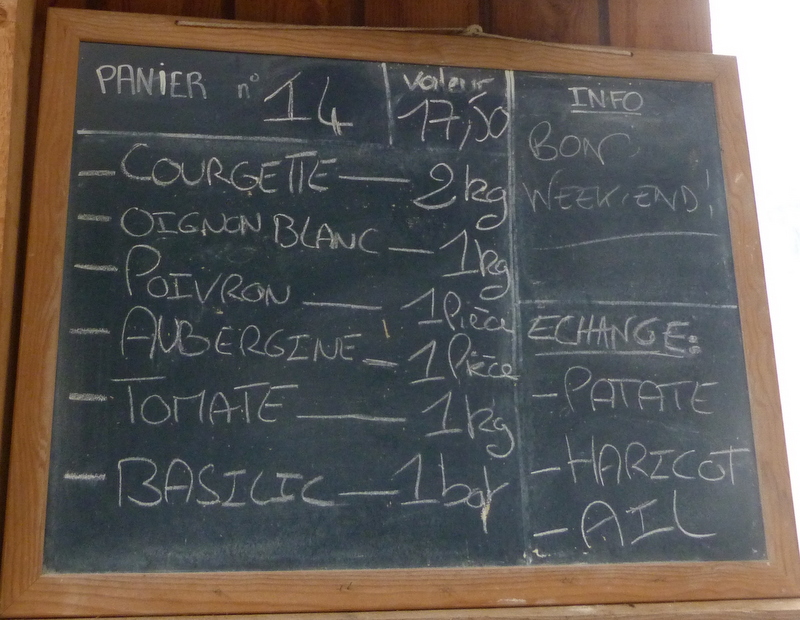 PANIER n° 14
Valeur
17,50
- COURGETTE — 2kg
- OIGNON BLANC — 1kg
- POIVRON — 1 Pièce
- AUBERGINE — 1 Pièce
- TOMATE — 1kg
- BASILIC — 1 bot
INFO
BON
WEEK-END!
ÉCHANGE:
- PATATE
- HARICOT
- AIL